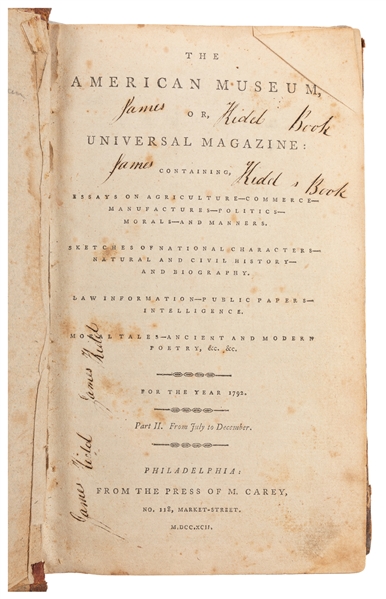 THE
AMERICAN MUSEUM,
James OR, Kidd Book
UNIVERSAL MAGAZINE:
James CONTAINING, Kidd s Book
ESSAYS ON AGRICULTURE—COMMERCE—
MANUFACTURES—POLITICS—
MORALS—AND MANNERS.
SKETCHES OF NATIONAL CHARACTERS—
NATURAL AND CIVIL HISTORY—
AND BIOGRAPHY.
LAW INFORMATION—PUBLIC PAPERS—
INTELLIGENCE.
MORAL TALES—ANCIENT AND MODERN
POETRY, &c. &c.
FOR THE YEAR 1792.
Part II. From July to December.
PHILADELPHIA:
FROM THE PRESS OF M. CAREY,
NO. 118, MARKET-STREET.
M.DCC.XCII.
James Kidd
James Kidd